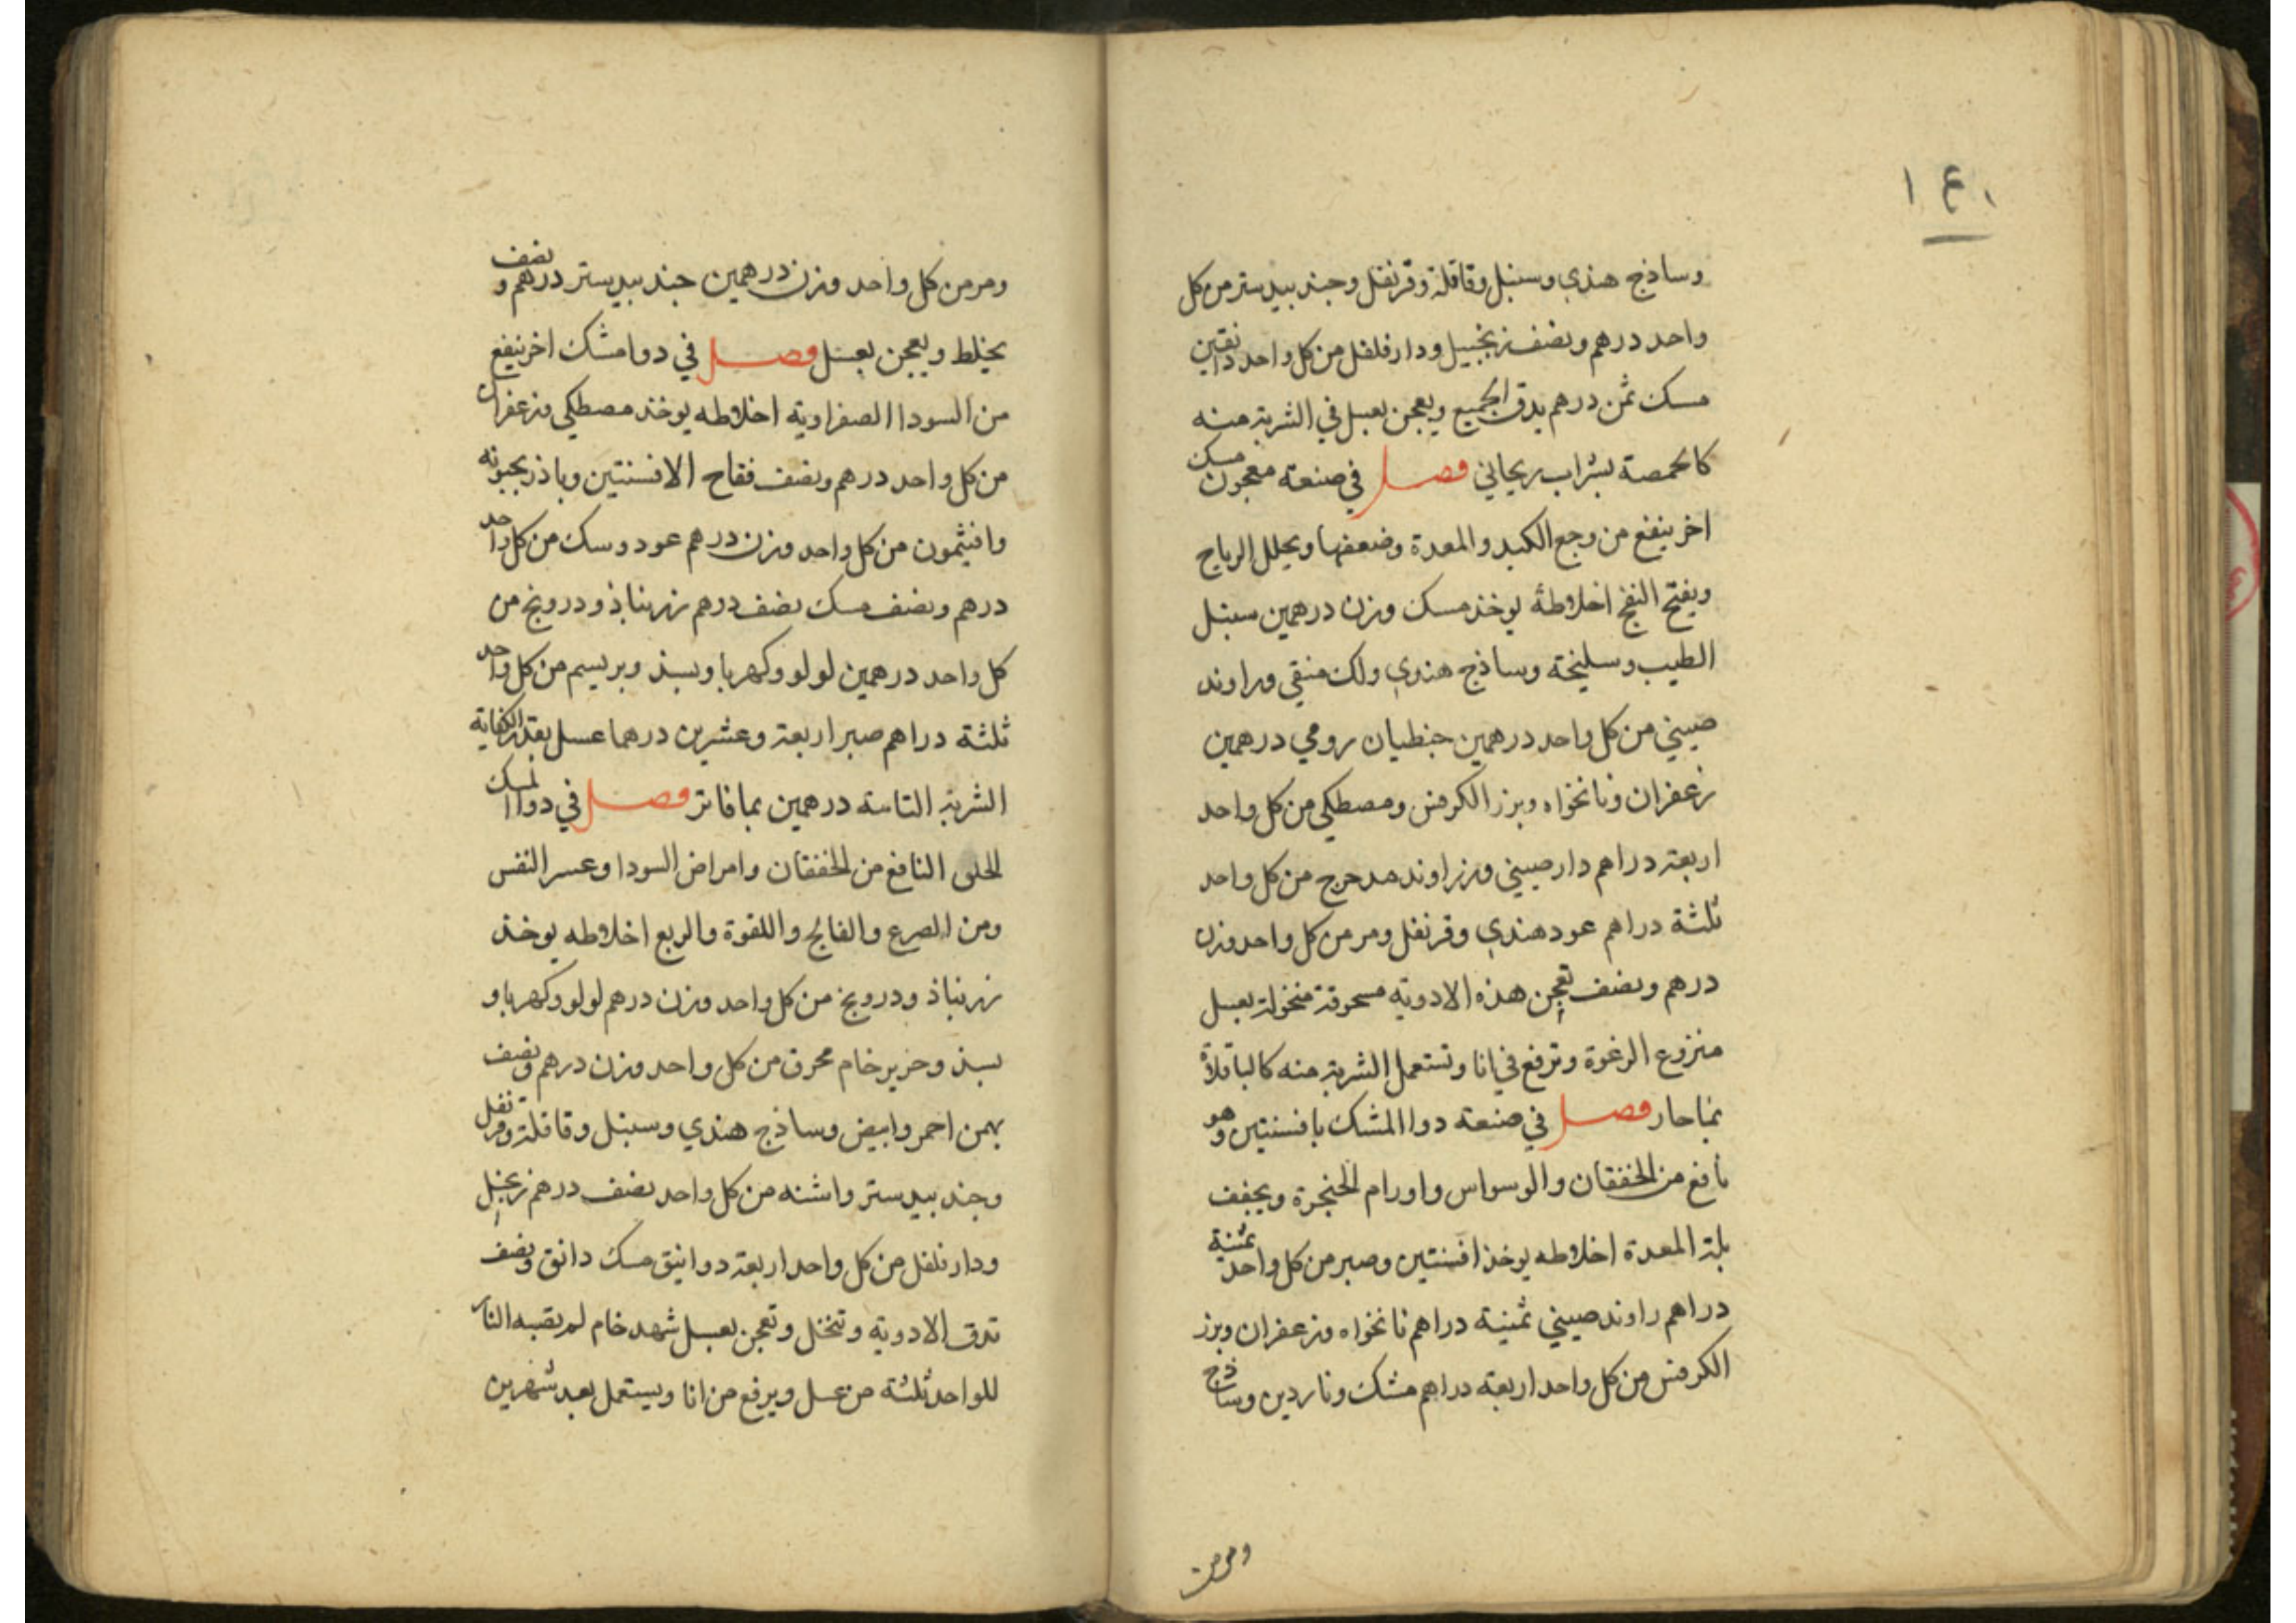 ١٤٠
وساذج هندي وسنبل وقاقلة وقرنفل وجندبيدستر من كل
واحد درهم ونصف زنجبيل ودارفلفل من كل واحد دانقين
مسك ثمن درهم يدق الجميع ويعجن بعسل في الشربة منه
كالحمصة بشراب ريحاني فصل في صنعة معجون مسك
اخر ينفع من وجع الكبد والمعدة وضعفها ويحلل الرياح
ويفتح النفخ اخلاطه يوخذ مسك وزن درهمين سنبل
الطيب وسليخة وساذج هندي ولك منقي وراوند
صيني من كل واحد درهمين جنطيان رومي درهمين
زعفران ونانخواه وبزر الكرفس ومصطكي من كل واحد
اربعة دراهم دارصيني وزراوند مدحرج من كل واحد
ثلثة دراهم عود هندي وقرنفل ومر من كل واحد وزن
درهم ونصف تعجن هذه الادوية مسحوقة منخولة بعسل
منزوع الرغوة وترفع في انا وتستعمل الشربة منه كالباقلاة
بما حار فصل في صنعة دوا المشك بافسنتين وهو
نافع من الخفقان والوسواس واورام الحنجرة ويجفف
بلة المعدة اخلاطه يوخذ افسنتين وصبر من كل واحد ثمنية
دراهم راوند صيني ثمنية دراهم نانخواه وزعفران وبزر
الكرفس من كل واحد اربعة دراهم مشك وناردين وساذج
ومر من
ومر من كل واحد وزن درهمين جندبيدستر درهم ونصف
يخلط ويعجن بعسل فصل في دوا مشك اخر ينفع
من السودا الصفراوية اخلاطه يوخذ مصطكي وزعفران
من كل واحد درهم ونصف فقاح الافسنتين وباذرنجبونه
وافيثمون من كل واحد وزن درهم عود وسك من كل واحد
درهم ونصف مسك نصف درهم زرنباذ ودرونج من
كل واحد درهمين لولو وكهربا وبسذ وبريسم من كل واحد
ثلثة دراهم صبر اربعة وعشرين درهما عسل بقدر الكفاية
الشربة التامة درهمين بما فاتر فصل في دوا المسك
الحلى النافع من الخفقان وامراض السودا وعسر النفس
ومن الصرع والفالج واللقوة والربع اخلاطه يوخذ
زرنباذ ودرونج من كل واحد وزن درهم لولو وكهربا و
بسذ وحرير خام محرق من كل واحد وزن درهم ونصف
بهمن احمر وابيض وساذج هندي وسنبل وقاقلة وقرنفل
وجندبيدستر واشنه من كل واحد نصف درهم زنجبيل
ودارفلفل من كل واحد اربعة دوانيق مسك دانق ونصف
تدق الادوية وتنخل وتعجن بعسل شهد خام لم يقبه النار
للواحد ثلثة من عسل ويرفع من انا ويستعمل بعد شهرين